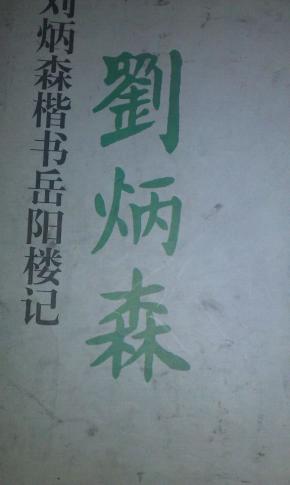 劉炳森
刘炳森楷书岳阳楼记